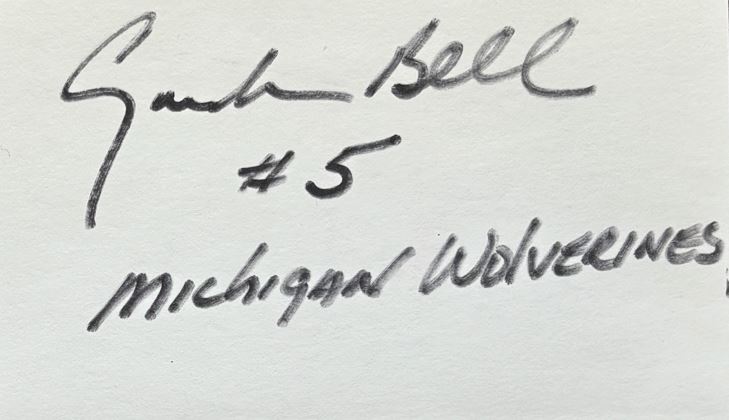 Gordon Bell
#5
Michigan Wolverines